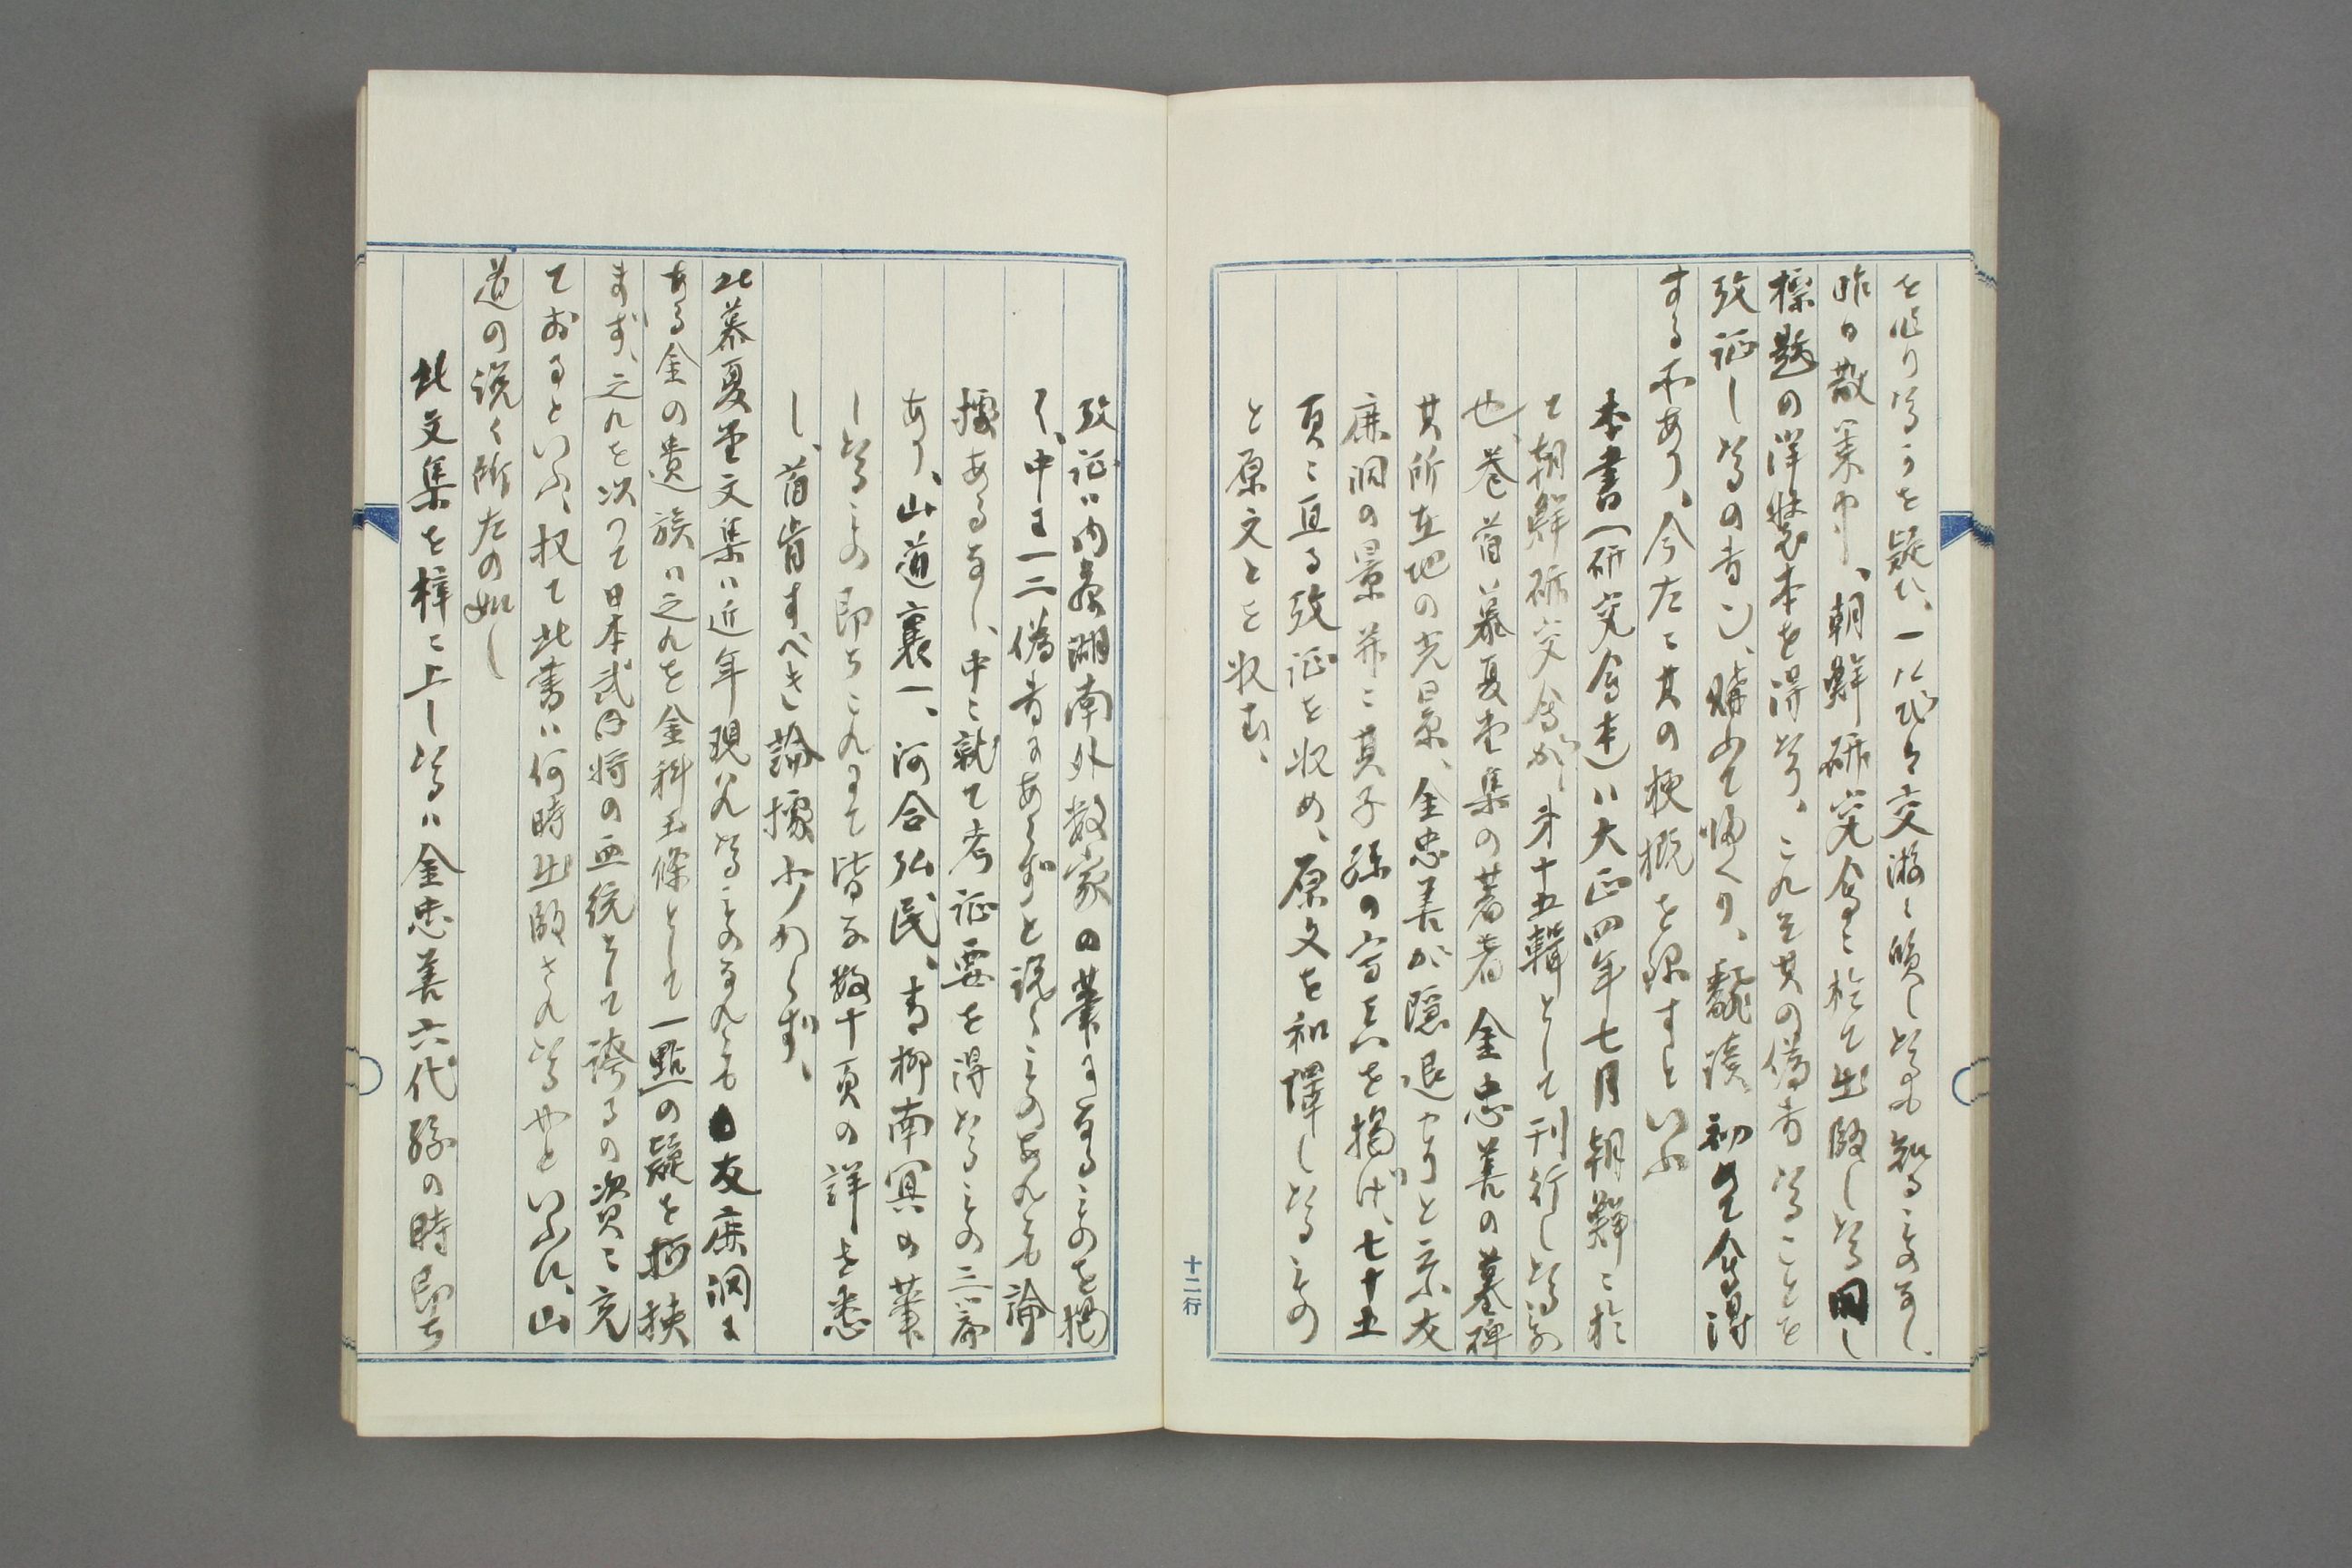 を作りたるかを疑ひ、一たび名交游に質したるも知るものなし、
昨日散策中、朝鮮研究会に於て出版したる同し
標題の洋装本を得たり、これを其の偽書たることを
攷証したるの書に、購ふて帰へり、飜読初めて会得
する所あり、今左に其の梗概を録すといふ
本書(研究会本)は大正四年七月朝鮮に於
て朝鮮研究会が、第十五輯として刊行したる
也、巻首に慕夏堂集の著者金忠善の墓碑
其所在地の光景、金忠善が隠退せりと云ふ友
鹿洞の景并に其子孫の写真を掲げ、七十五
頁に亘る攷証を収め、原文を和譯したるもの
と原文とを収む、
十二行
攷証は内藤湖南外数家の筆になるものを掲
く、中に一二偽書にあらずと説くものあれども論
據あるなし、中に就て考証要を得たるもの三篇
あり、山道襄一、河合弘民、青柳南冥の筆
したるもの即ちこれにて皆な数十頁の詳を悉
し、首肯すべき論據少からず、
此慕夏堂文集は近年現はれたるものなれども友鹿洞に
ある金の遺族は之れを金科玉條として一點の疑を挟
まず、之れを以つて日本武将の血統として誇るの資に充
ておるといふ、扨て此書は何時出版されたるやといふに、山
道の説く所左の如し
此文集を梓に上したるは金忠善六代孫の時即ち